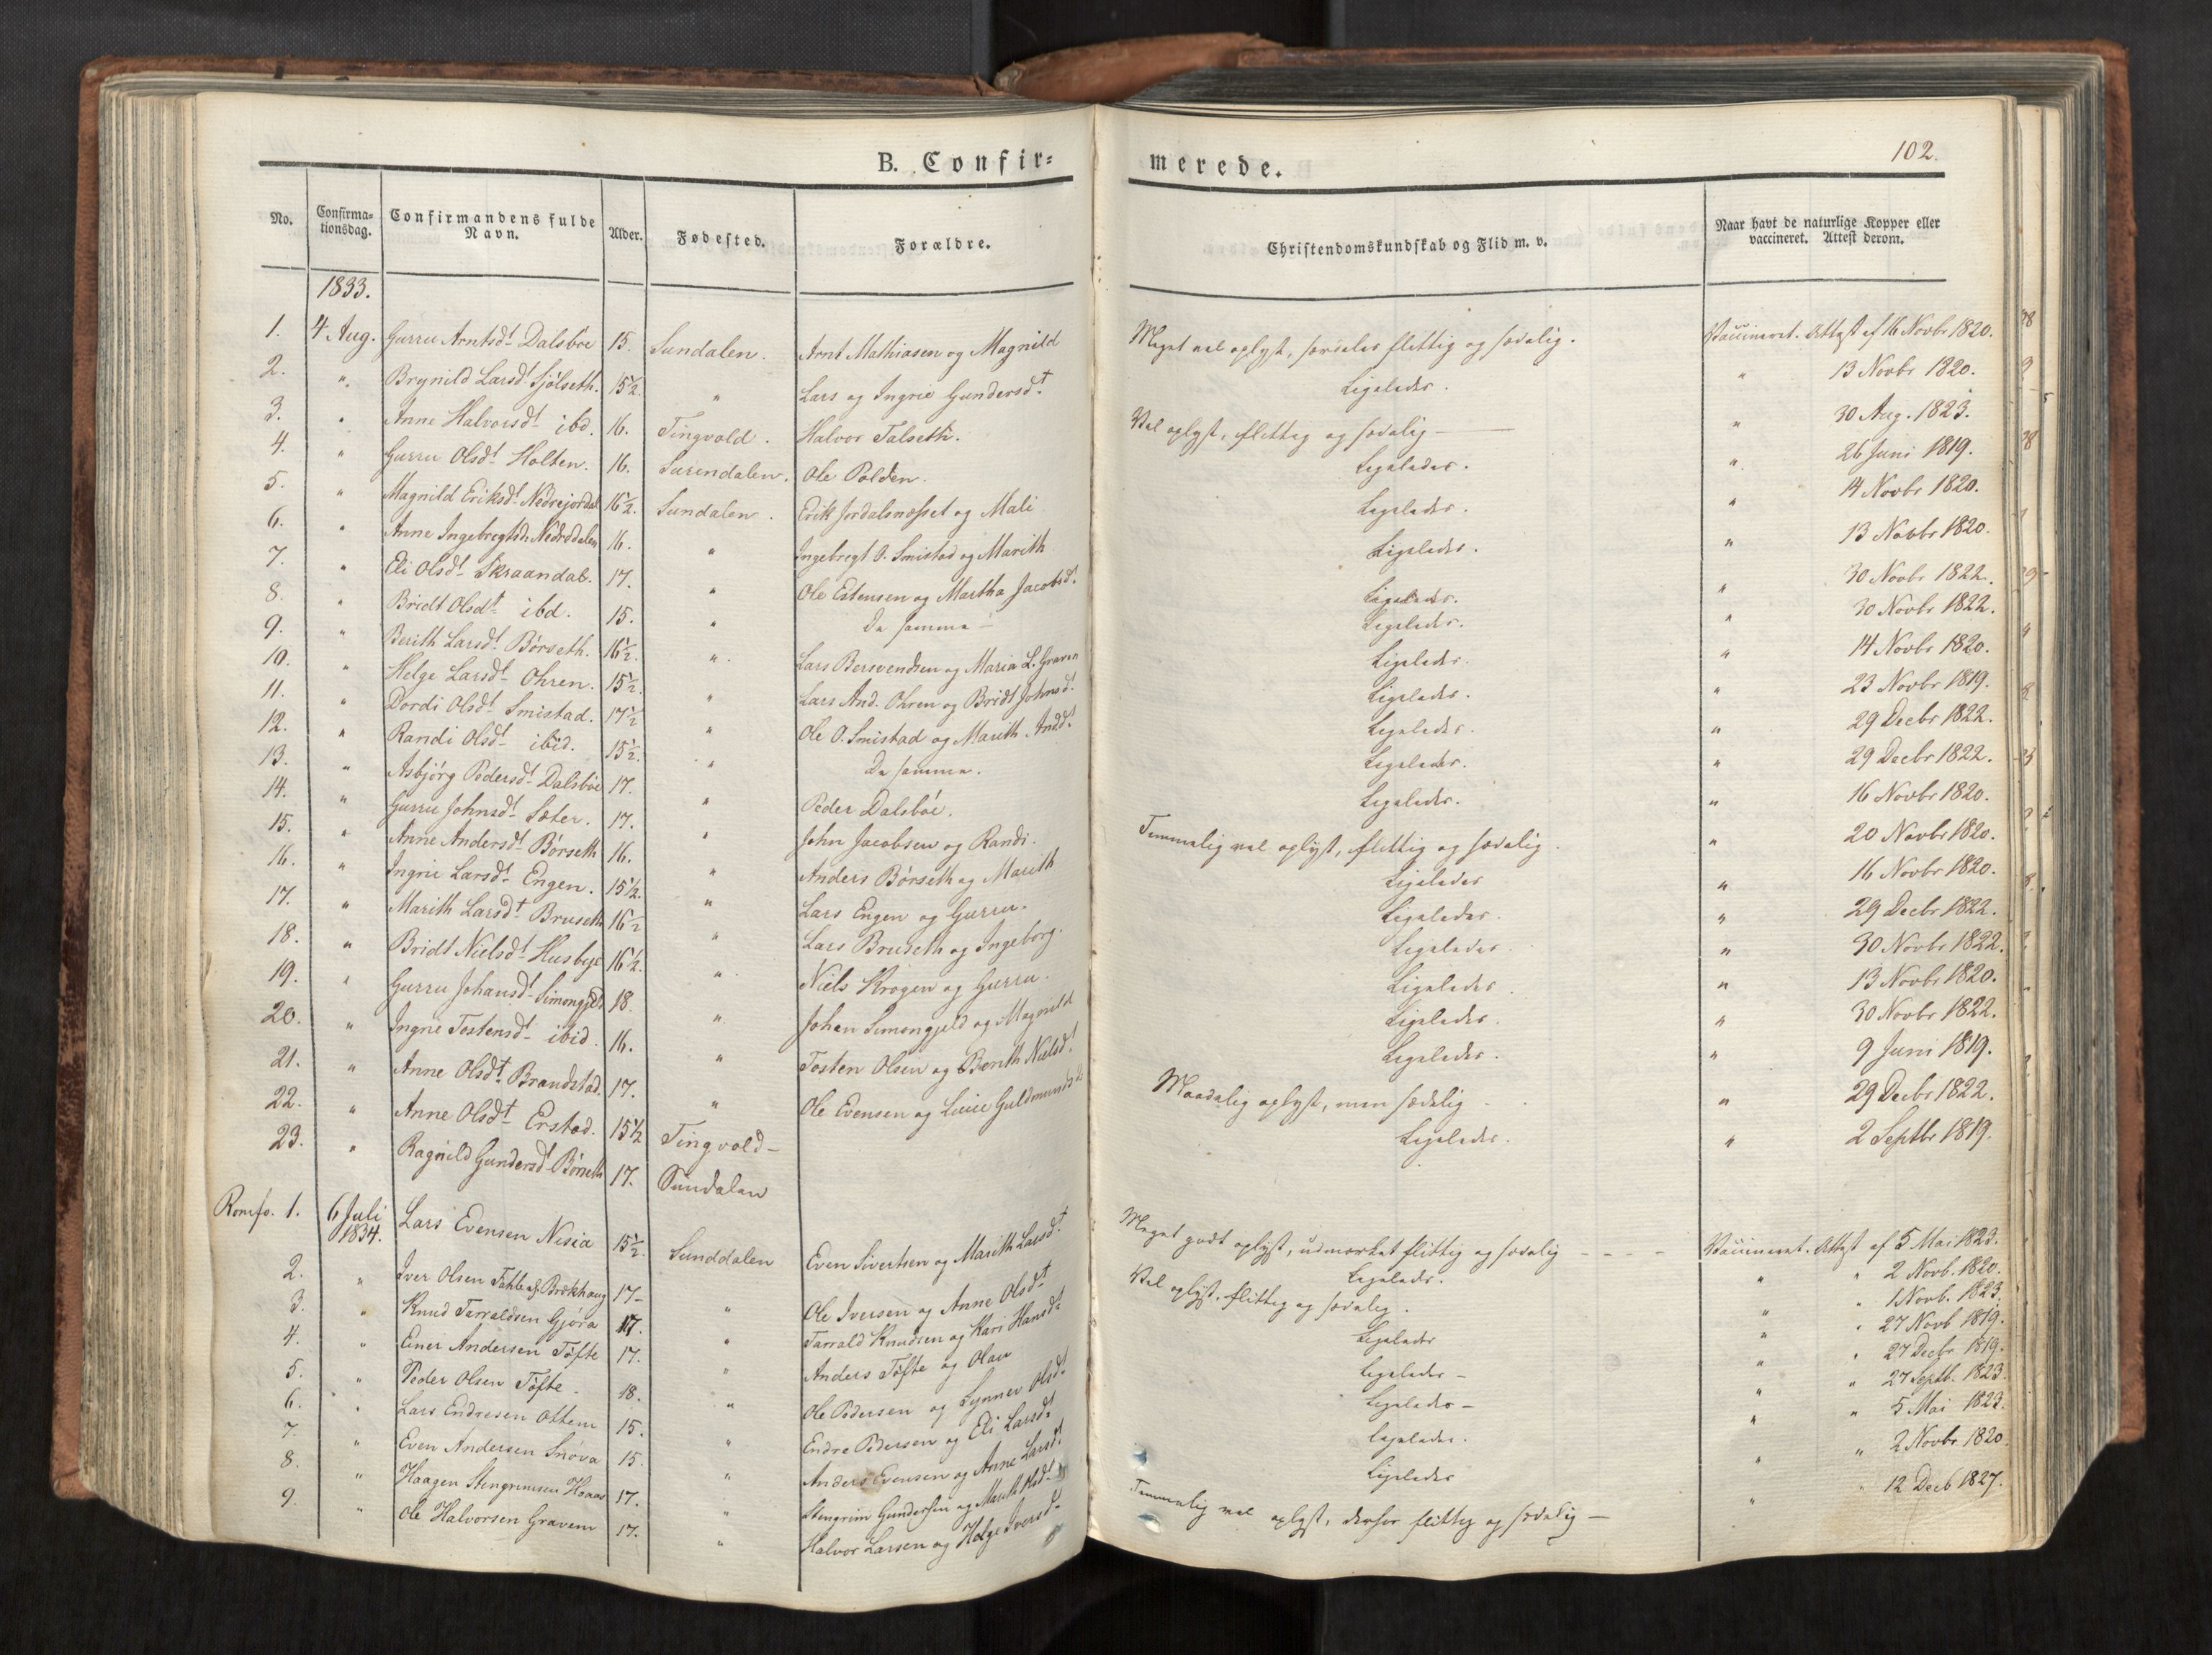 B. Confir=
merede.
102.
No. Confirma=tionsdag. Confirmandens fulde Navn. Alder. Fødested. Forældre. Christendomskundskab og Flid m. v. Naar havt de naturlige Kopper eller vaccineret. Attest derom.
1833.
1. 4 Aug. Gurru Arntsdt Dalsböe 15. Sundalen. Arnt Mathiasen og Magnild Meget vel oplyst, særdeles flittig og sædelig. Vaccineret. Attest af 16 Novbr 1820.
2. " Brynild Larsdt Sjölseth. 15½ " Lars og Ingrie Gundersdt Ligeledes. " 13 Novbr 1820.
3. " Anne Halvorsdt ibd. 16. Tingvold. Halvor Talseth. Vel oplyst, flittig og sædelig " 30 Aug. 1823.
4. " Gurru Olsdt Holten. 16. Surendalen. Ole Polden. Ligeledes. " 26 Juni 1819.
5. " Magnild Eriksdt Nedrejordal 16½. Sundalen. Erik Jordalsnæsset og Mali Ligeledes. " 14 Novbr 1820.
6. " Anne Ingebregtsdt Nedredalen 16. " Ingebregt O. Smistad og Marith Ligeledes. " 13 Novbr 1820.
7. " Eli Olsdt Skraandal. 17. " Ole Estensen og Martha Jacobsdt Ligeledes. " 30 Novbr 1822.
8. " Bridt Olsdt ibd. 15. " De samme Ligeledes. " 30 Novbr 1822.
9. " Berith Larsdt Börseth. 16½. " Lars Bersvendsen og Maria L. Graven Ligeledes. " 14 Novbr 1820.
10. " Helge Larsdt Ohren. 15½. " Lars And. Ohren og Bridt Johnsdt Ligeledes. " 23 Novbr 1819.
11. " Dordi Olsdt Smistad. 17½ " Ole O. Smistad og Marith Andt Ligeledes. " 29 Decbr 1822.
12. " Randi Olsdt ibid. 15½. " De samme. Ligeledes. " 29 Decbr 1822.
13. " Asbjörg Pedersdt Dalsböe 17. " Peder Dalsböe. Ligeledes. " 16 Novbr 1820.
14. " Gurru Johnsdt Sæter. 17. " John Jacobsen og Randi. Temmelig vel oplyst, flittig og sædelig. " 20 Novbr 1820.
15. " Anne Andersdt Börseth 16. " Anders Börseth og Marith Ligeledes " 16 Novbr 1820.
16. " Ingrie Larsdt Engen. 15½. " Lars Engen og Gurru. Ligeledes. " 29 Decbr 1822.
17. " Marith Larsdt Bruseth 16½ " Lars Bruseth og Ingeborg. Ligeledes. " 30 Novbr 1822.
18. " Bridt Nielsdt Husbye 16½. " Niels Krogen og Gurru. Ligeledes. " 13 Novbr 1820.
19. " Gurru Johansdt Simongjeld 18. " Johan Simongjeld og Magnild Ligeledes. " 30 Novbr 1822.
20. " Ingrie Tostensdt ibid. 16. " Tosten Olsen og Berith Nielsdt Ligeledes. " 9 Juni 1819.
21. " Anne Olsdt Brandstad. 17. " Ole Evensen og Lucie Guldmundsd. Maadelig oplyst, men sædelig " 29 Decbr 1822.
22. " Anne Olsdt Erstad. 15½ Tingvold Ligeledes. " 2 Septbr 1819.
23. " Ragnild Gundersdt Börseth 17. Sundalen
Romfo. 1. 6 Juli 1834. Lars Evensen Nisia 15½. Sunddalen Even Sivertsen og Marith Larsdt Meget godt oplyst, udmærket flittig og sædelig Vaccineret. Attest af 5 Mai 1823.
2. " Iver Olsen Fahle af Brækhaug 17 " Ole Iversen og Anne Olsdt Ligeleds. " " 2 Novb. 1820.
3. " Knud Tarraldsen Gjöra 17. " Tarrald Knudsen og Kari Hansdt Vel oplyst, flittig og sædelig. " " 1 Novb. 1823.
4. " Einer Andersen Töfte 17. " Anders Töfte og Olau Ligeledes " " 27 Novb 1819.
5. " Peder Olsen Töfte 18. " Ole Pedersen og Synnev Olsdt Ligeledes " " 27 Decbr 1819.
6. " Lars Endresen Ottem 15. " Endre Pedersen og Eli Larsdt Ligeledes " " 27 Septb. 1823.
7. " Even Andersen Snöva 15. " Anders Evensen og Anne Larsdt Ligeledes. " " 5 Mai 1823.
8. " Haagen Stengrimsen Hoaas 17. " Stengrim Gundersen og Marith Olsdt Ligeledes " " 2 Novbr 1820.
9. " Ole Halvorsen Gravem 17. " Halvor Larsen og Helge Iversdt Temmelig vel oplyst, derhos flittig og sædelig " " 12 Decb 1827.